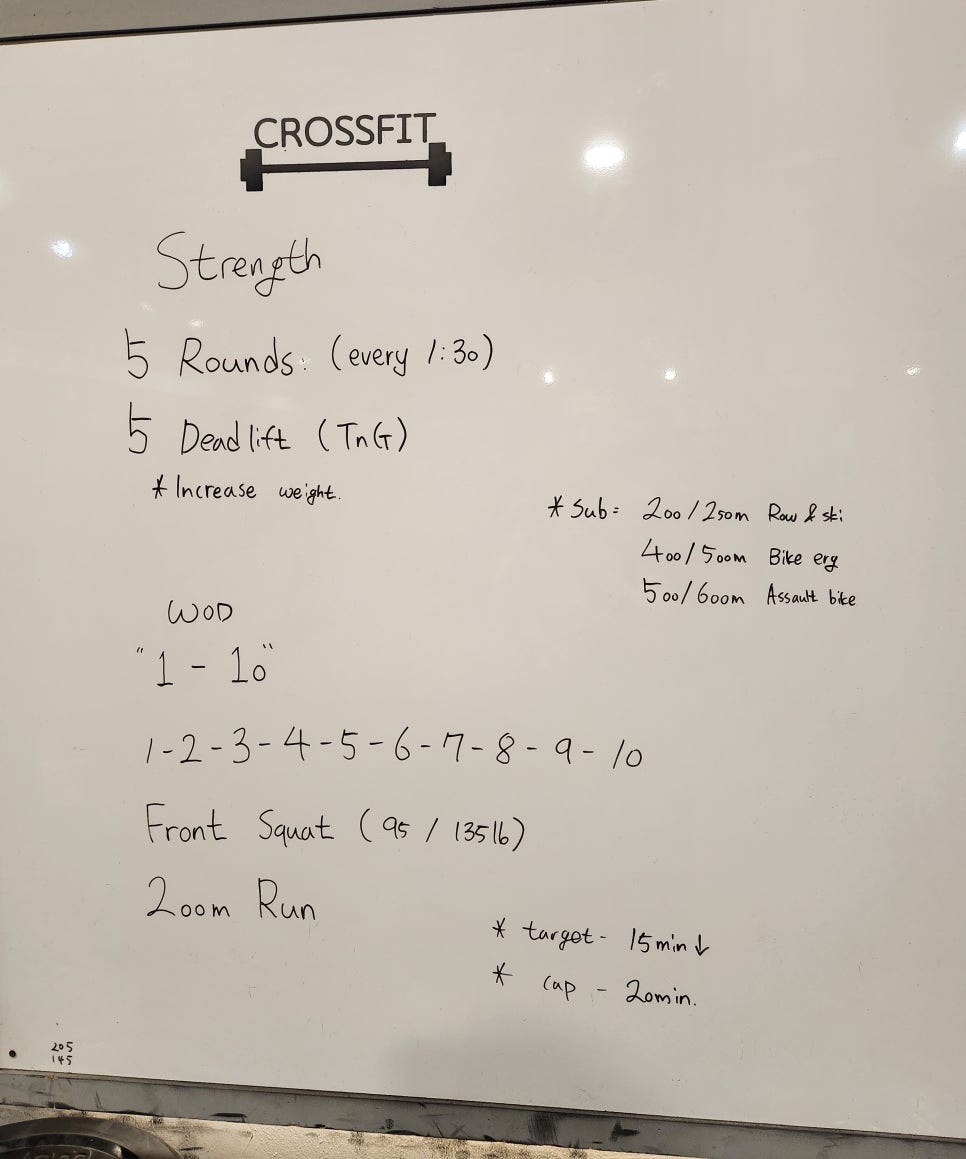 CROSSFIT
Strength
5 Rounds: (every 1:30)
5 Deadlift (TnG)
* Increase weight.
* Sub: 200/250m Row & ski
400/500m Bike erg
500/600m Assault bike
WOD
"1 - 10"
1-2-3-4-5-6-7-8-9-10
Front Squat (95 / 135lb)
200m Run
* target - 15min↓
* cap - 20min.
205
145